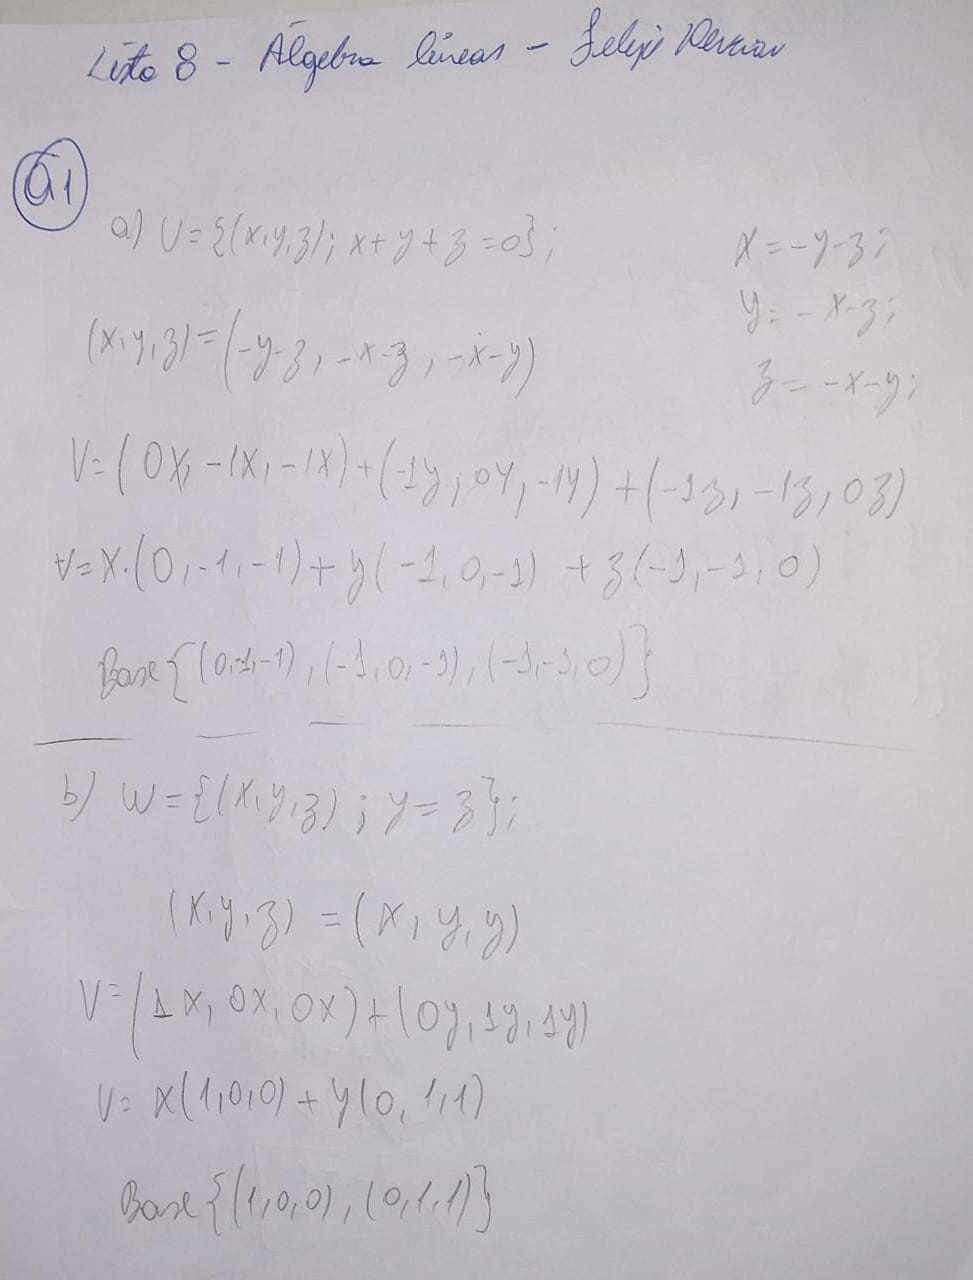 Lista 8 - Álgebra linear - Felipe
Q1
a) U = {(x,y,z); x+y+z=0};
x = -y-z;
y = -x-z;
z = -x-y;
(x,y,z) = (-y-z, -x-z, -x-y)
V = (0x, -1x, -1x) + (-1y; 0y, -1y) + (-1z, -1z, 0z)
V = x.(0,-1,-1) + y(-1,0,-1) + z(-1,-1,0)
Base {(0,-1,-1), (-1,0,-1), (-1,-1,0)}
b) W = {(x,y,z); y = z};
(x,y,z) = (x, y, y)
V = (1x, 0x, 0x) + (0y, 1y, 1y)
V = x(1,0,0) + y(0,1,1)
Base {(1,0,0), (0,1,1)}